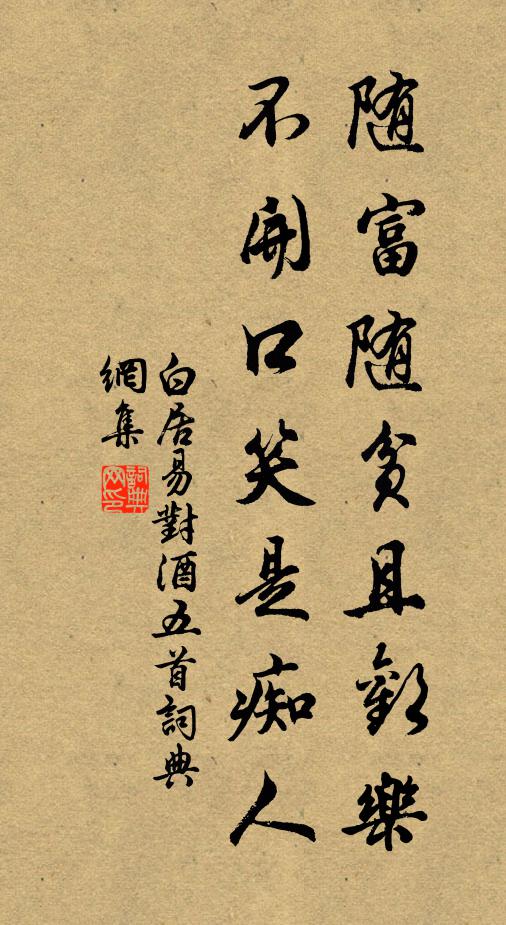 随富随贫且歡樂
不開口笑是痴人
白居易對酒五首詞典
網集
詞典
网印